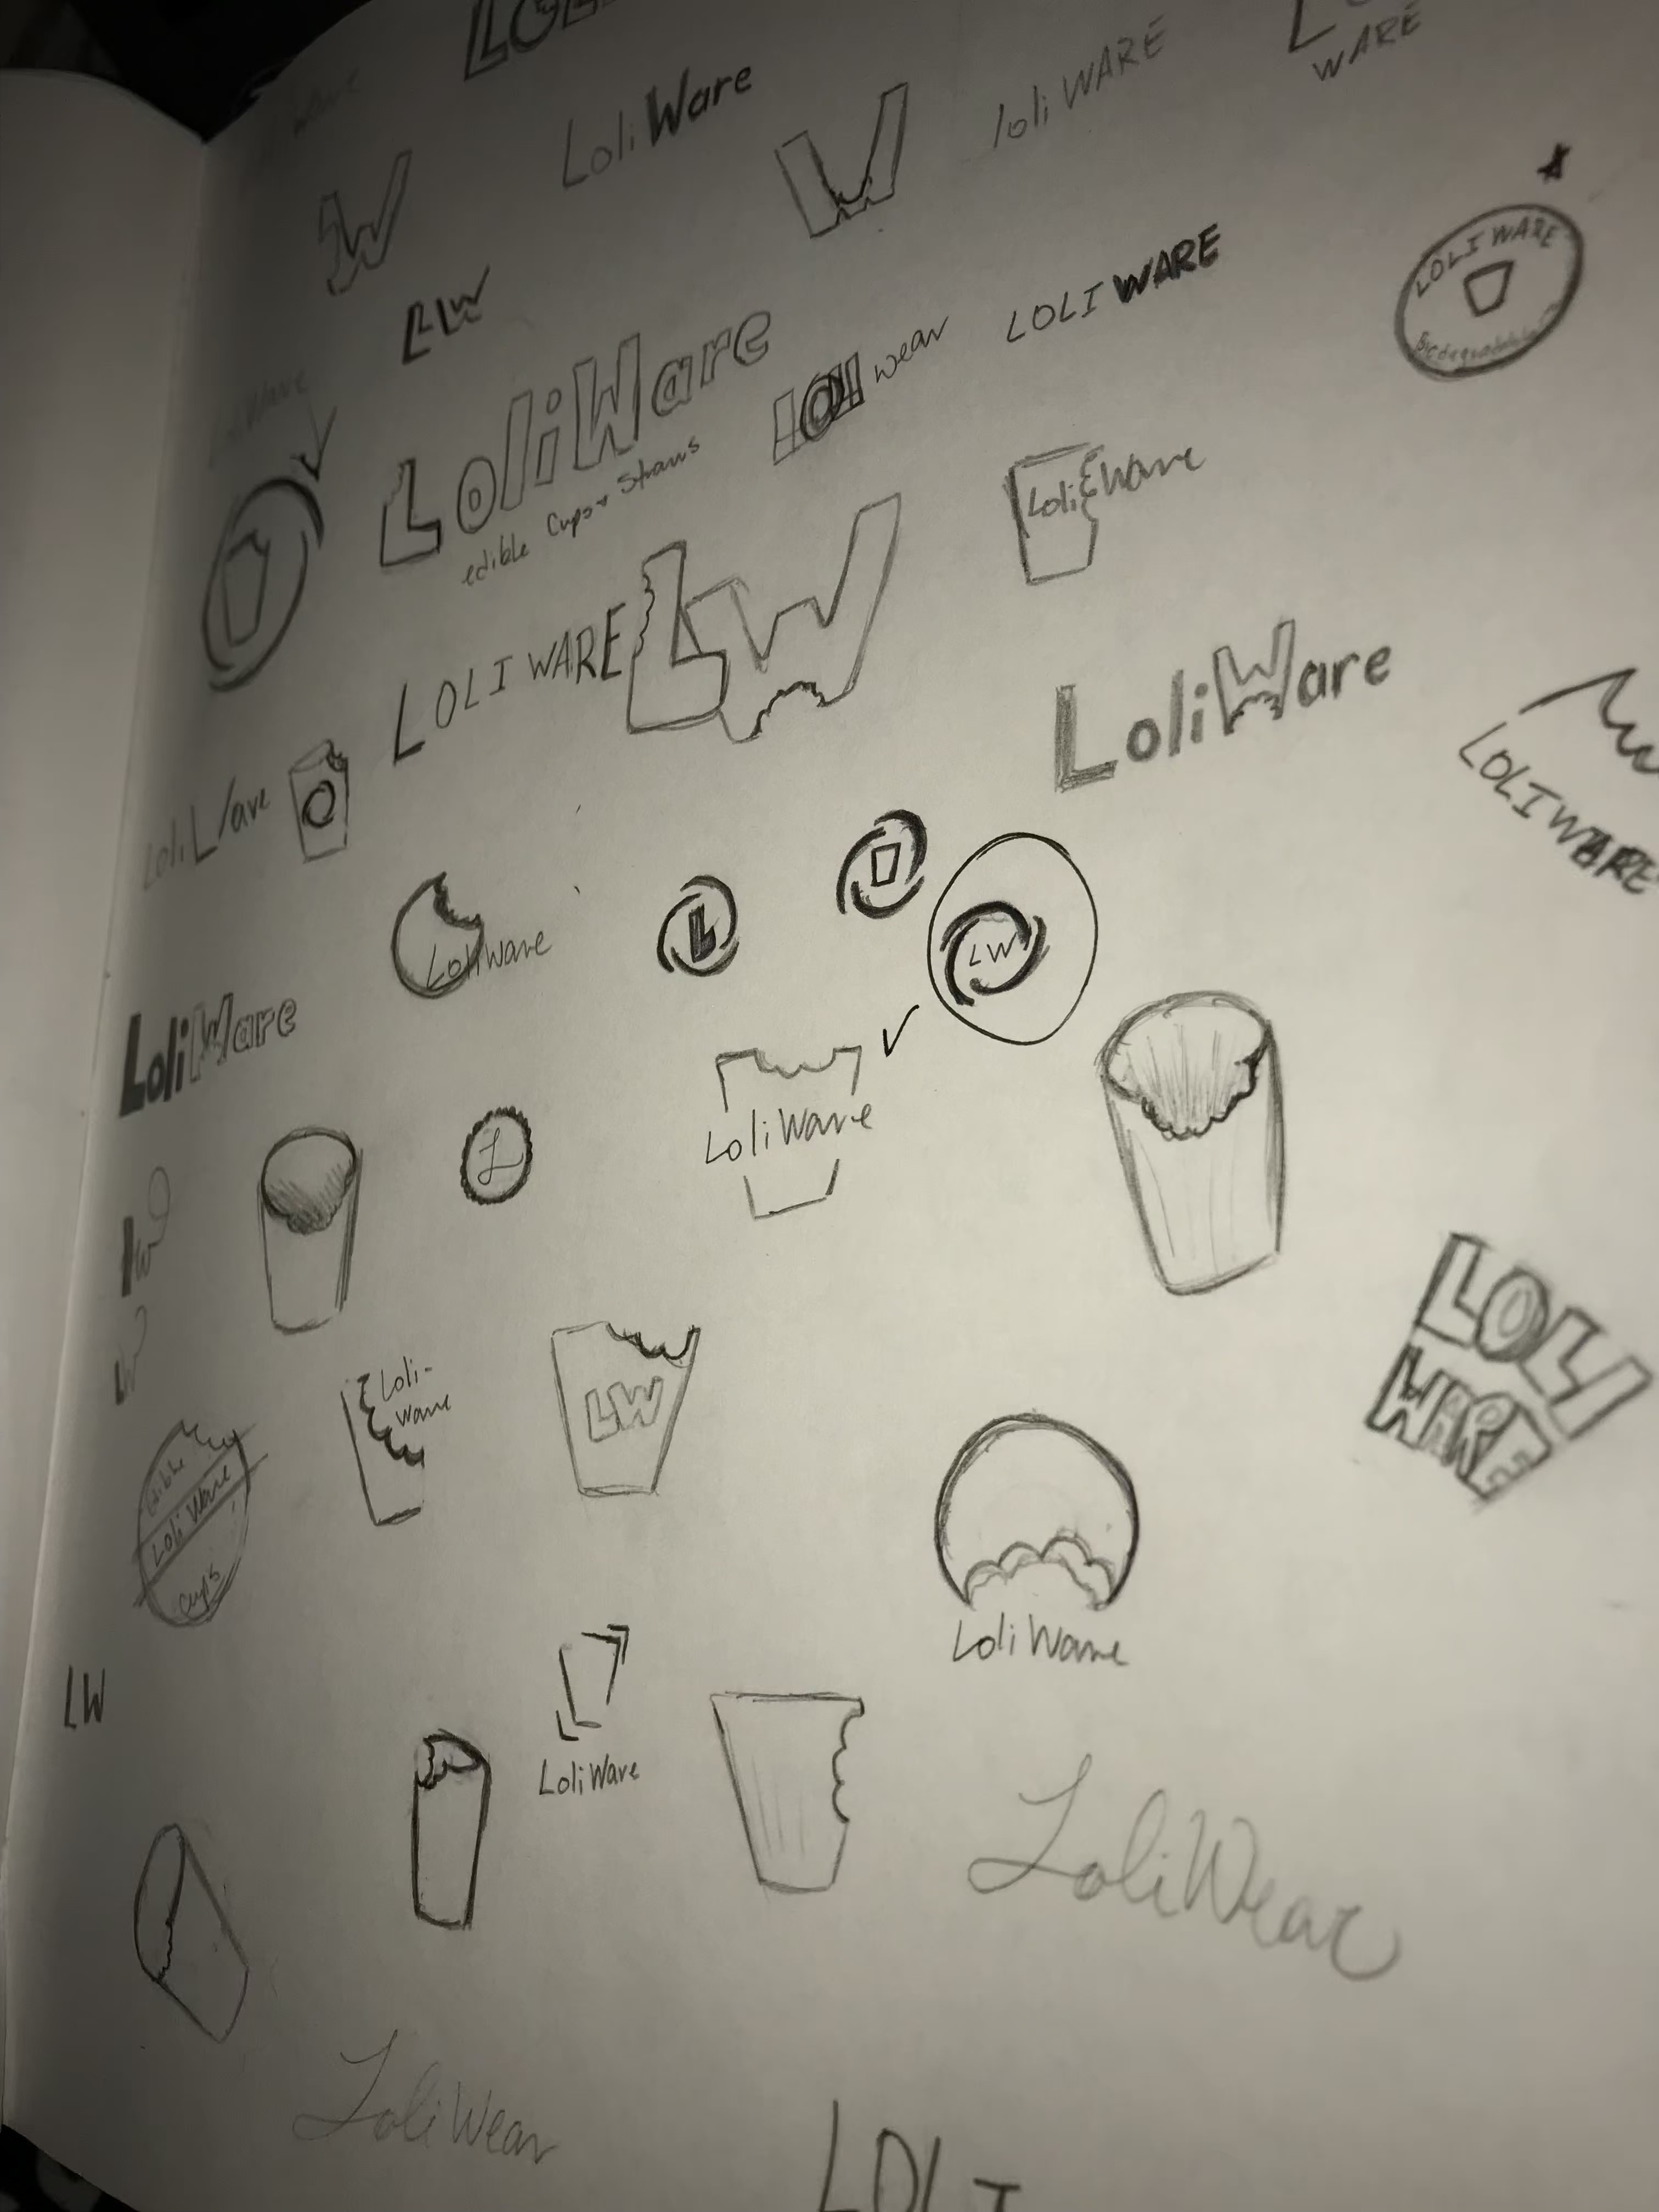 LOLI
WARE
Loli Ware
loli WARE
W
W
LW
LOLI WARE
Biodegradable
LoliWare
edible Cups + Straws
loli wear
LOLI WARE
Loli Ware
LOLI WARE
LW
LoliWare
LOLIWARE
Loli
LoliWare
L
LW
LoliWare
L
LoliWare
LW
LW
Loli-
Ware
LW
LOLI
WARE
edible
Loli Ware
Cups
Loli Ware
LW
LoliWare
LoliWear
LoliWear
LOLI